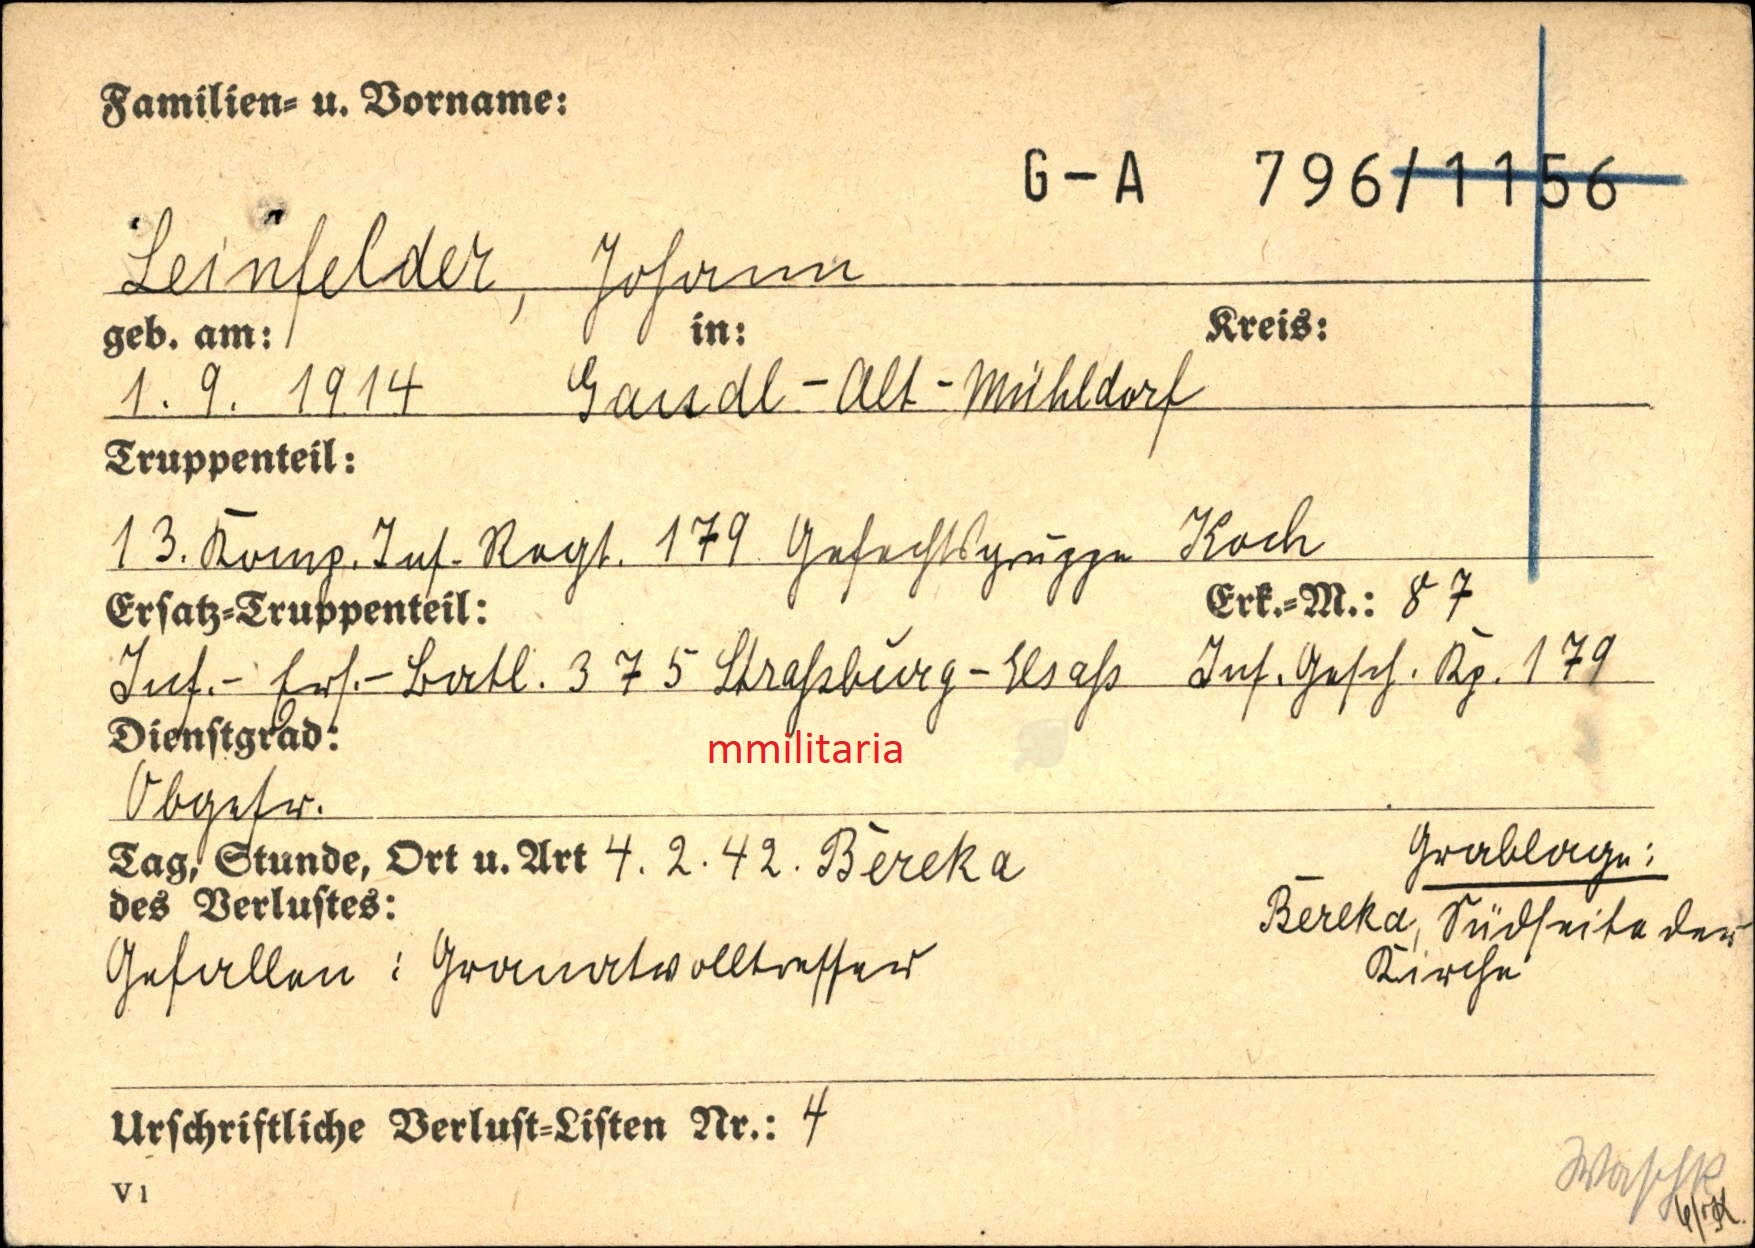 Familien- u. Vorname:
G-A 796/1156
Leinfelder, Johann
geb. am: in: Kreis:
1. 9. 1914 Gandl-Alt-Mühldorf
Truppenteil:
13. Komp. Inf. Regt. 179 Gefechtsgruppe Koch
Ersatz-Truppenteil: Erk.-M.: 87
Inf.- Ers.- Batl. 375 Straßburg-Elsaß Inf. Gesch. Kp. 179
Dienstgrad:
mmilitaria
Obgefr.
Tag, Stunde, Ort u. Art 4. 2. 42. Bereka
des Verlustes:
Gefallen : Granatvolltreffer
Grablage:
Bereka, Südseite der
Kirche
Urschriftliche Verlust-Listen Nr.: 4
V 1